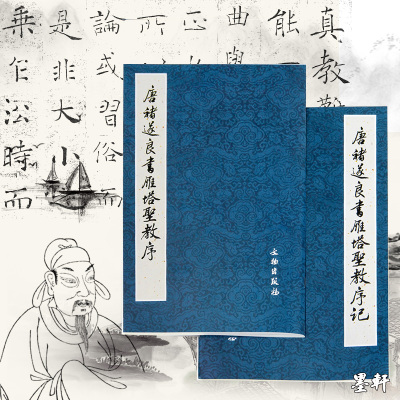 真教難
能一
曲學
正
所以
論或習俗而
是非大小
乘乍沿時而
唐褚遂良書雁塔聖教序
文物出版社
唐褚遂良書雁塔聖教序記
墨軒